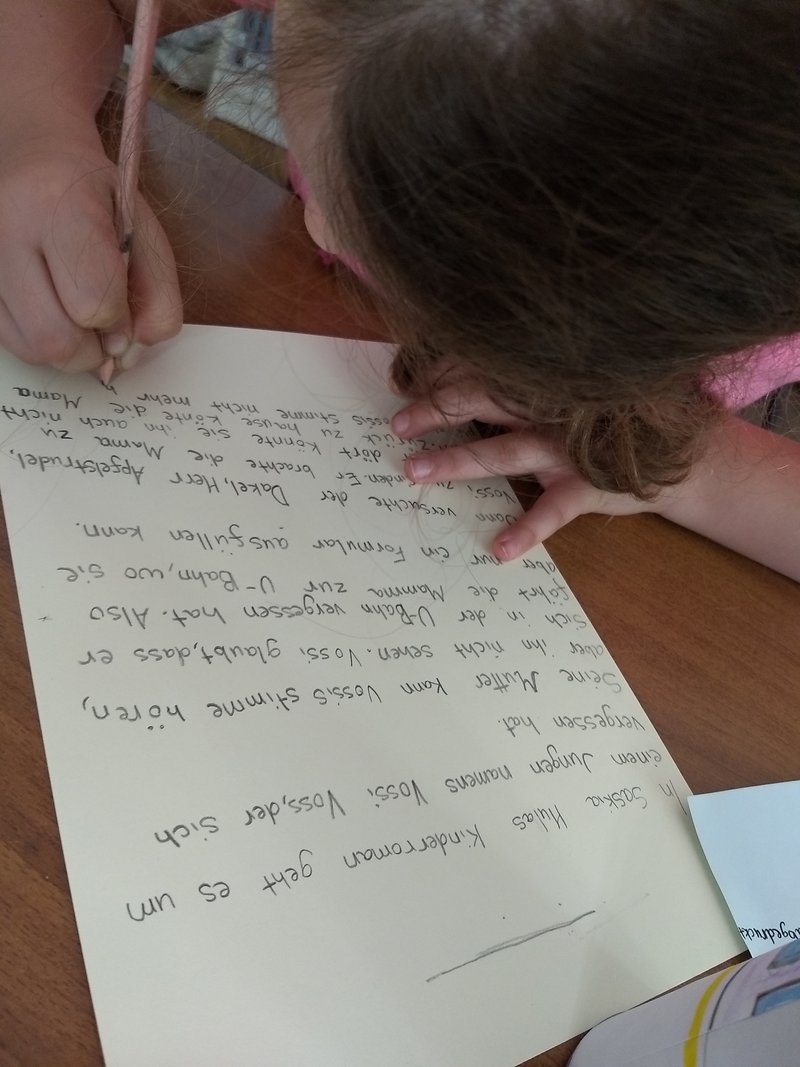 In Saskia Hulas Kinderroman geht es um
einem Jungen namens Vossi Voss, der sich
vergessen hat.
Seine Mutter kann Vossis stimme hören,
aber ihn nicht sehen. Vossi glaubt, dass er
sich in der U-Bahn vergessen hat. Also
fährt die Mamma zur U-Bahn, wo sie
aber nur ein Formular ausfüllen kann.
Dann versuchte der Dakel, Herr Apfelstrudel,
Vossi zu finden. Er brachte die Mama zu
dort könnte sie ihn auch nicht
zurück zu hause könte die Mama
Vossis stimme nicht mehr h
abgedruckt